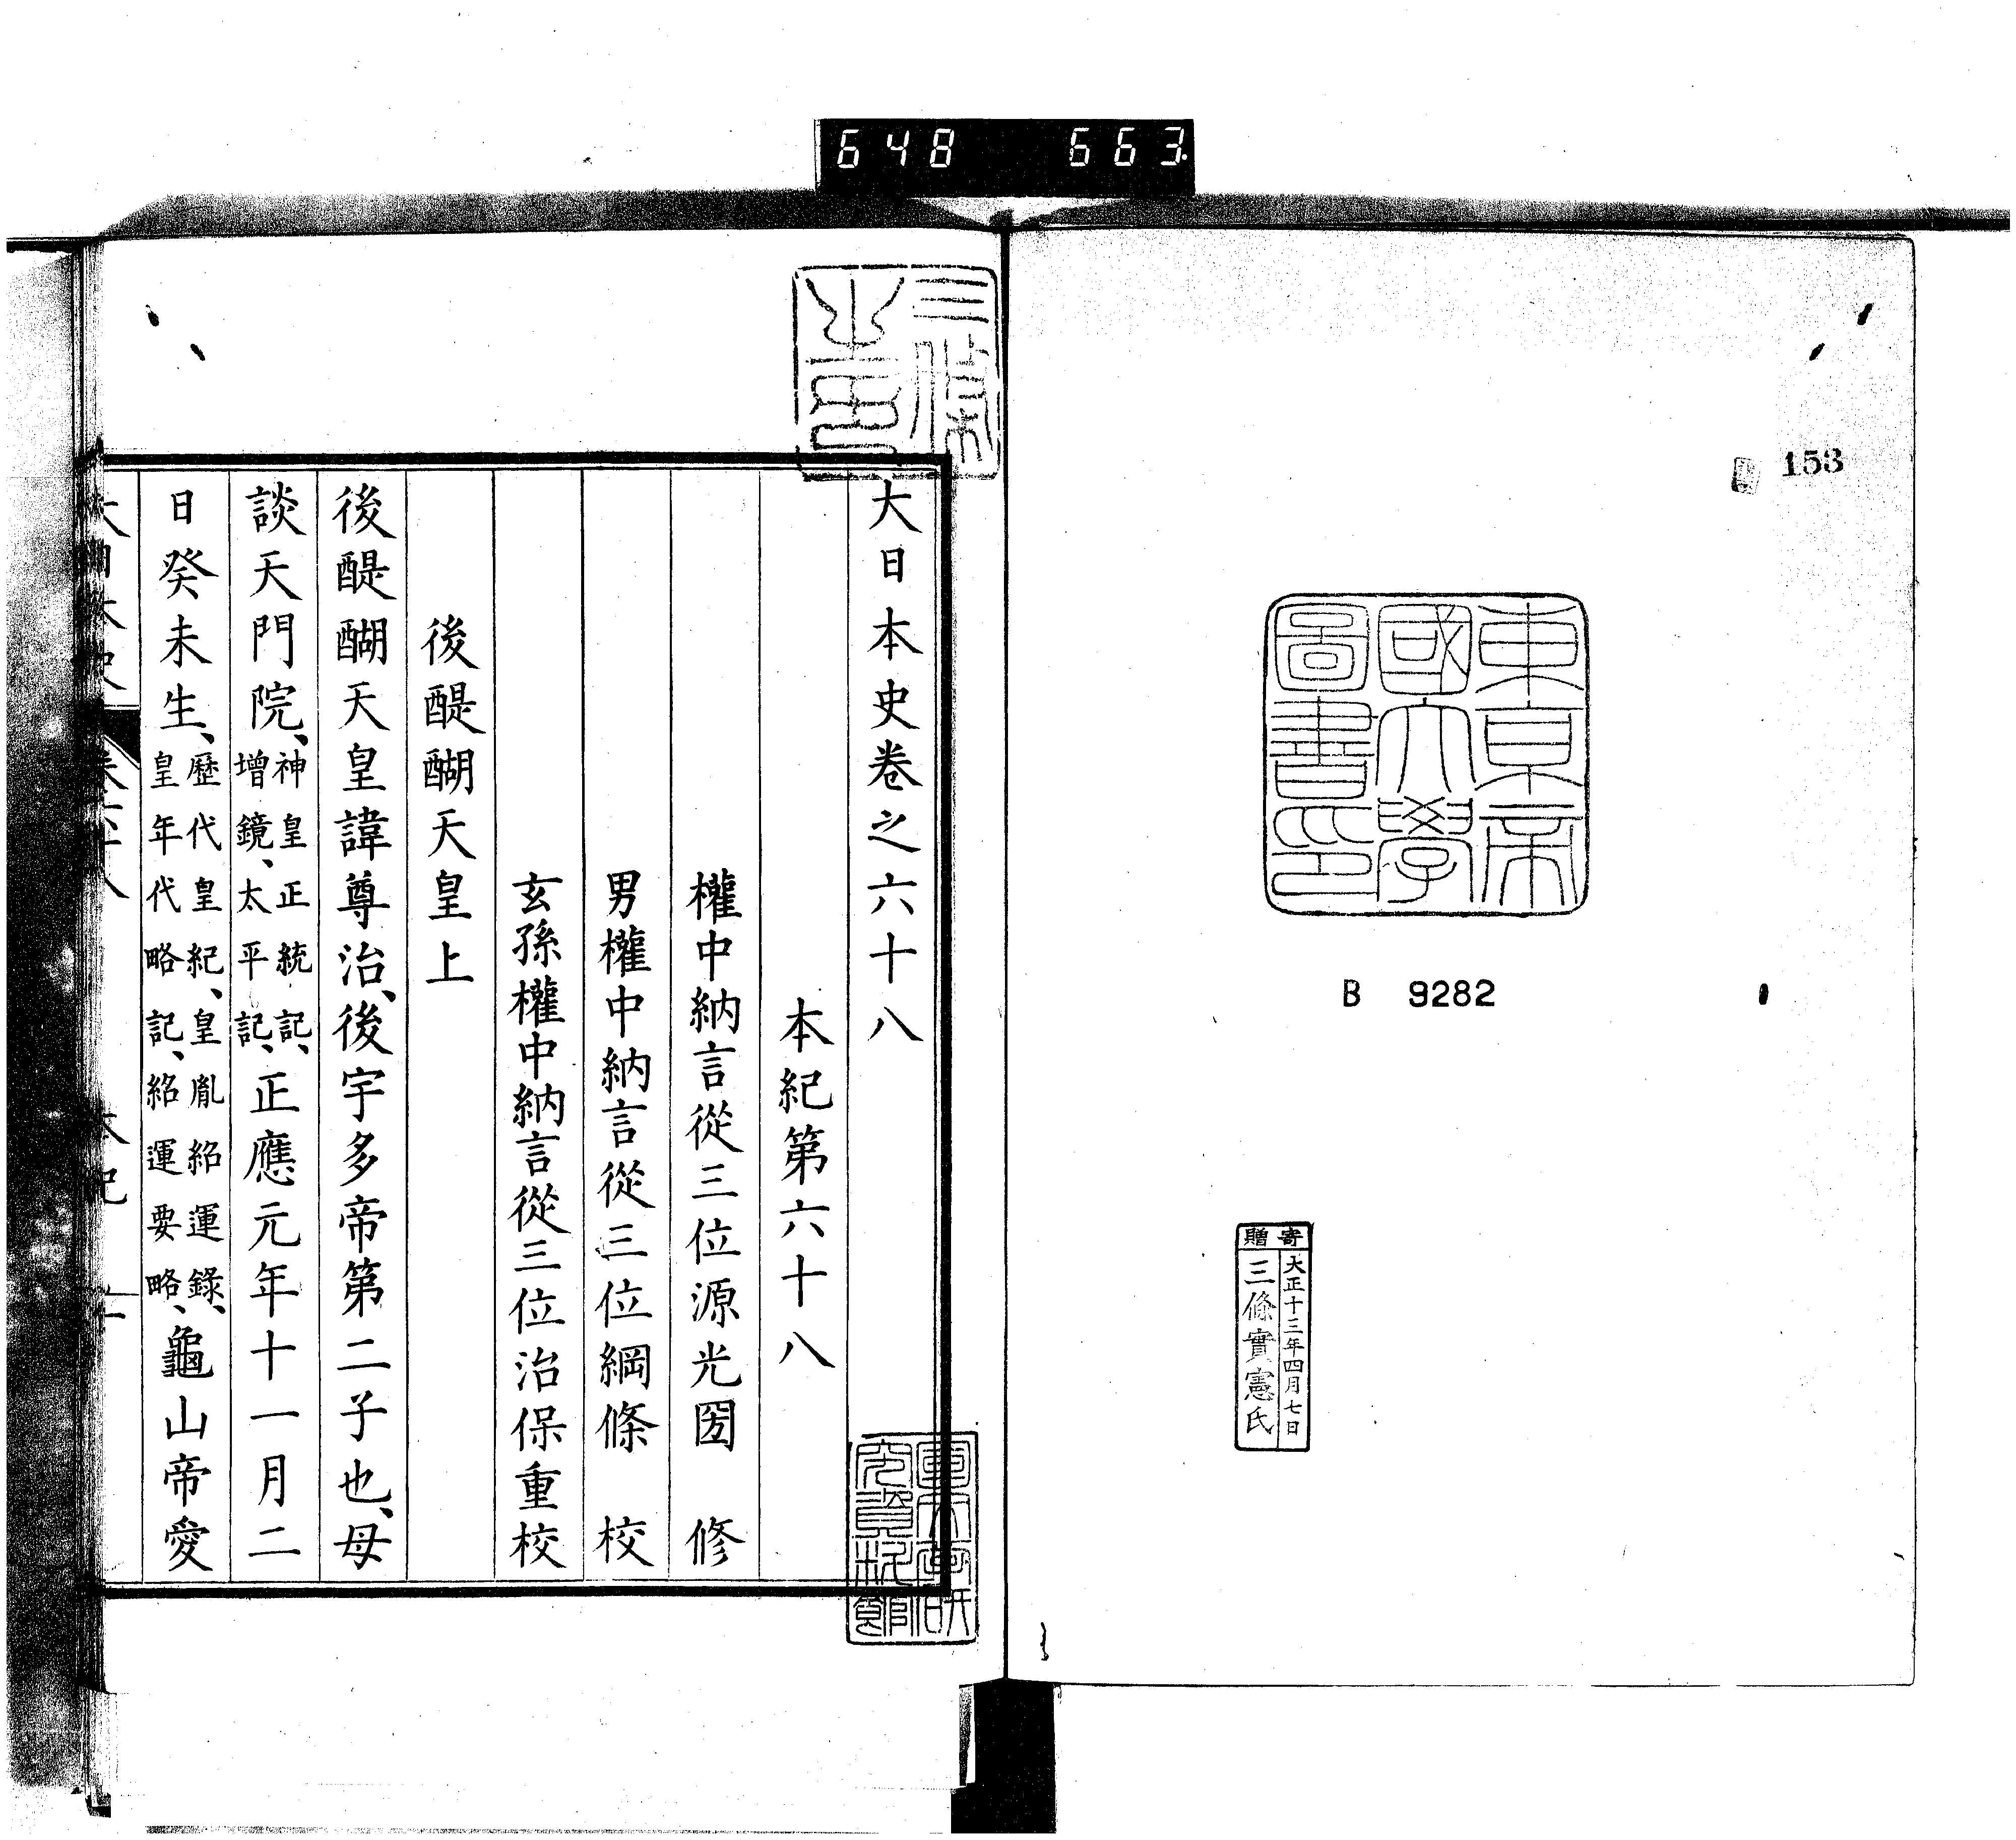 648 663
153
東京帝
國大學
圖書印
B 9282
寄贈
大正十三年四月七日
三條實憲氏
三條
大日本史卷之六十八
本紀第六十八
權中納言從三位源光圀 修
男權中納言從三位綱條 校
玄孫權中納言從三位治保重校
後醍醐天皇上
後醍醐天皇諱尊治、後宇多帝第二子也、母
談天門院、神皇正統記、增鏡、太平記、正應元年十一月二
日癸未生、歷代皇紀、皇胤紹運錄、皇年代略記、紹運要略、龜山帝愛